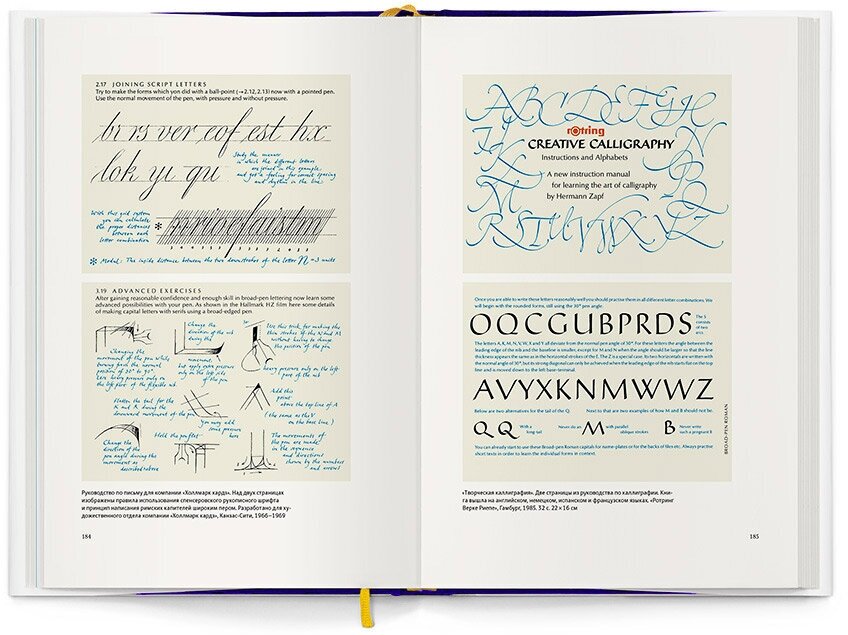 2.17 JOINING SCRIPT LETTERS
Try to make the forms which you did with a ball-point (→2.12, 2.13) now with a pointed pen.
Use the normal movement of the pen, with pressure and without pressure.
bi rs ver eof est hx
lok yi qu
Study the manner
in which the different letters
are joined in this example,
and get a feeling for correct spacing
and rhythm in the line
With this grid system
you can calculate
the proper distances
between each
letter combination
* Model: The inside distance between the two downstrokes of the letter n = 3 units
3.19 ADVANCED EXERCISES
After gaining reasonable confidence and enough skill in broad-pen lettering now learn some
advanced possibilities with your pen. As shown in the Hallmark HZ film here some details
of making capital letters with serifs using a broad-edged pen
Change the
direction of the
Use this trick for making the
thin strokes of the N and M
without having to change
the position of the pen
Changing the
movement of the pen while
turning from the normal
position of 30° to 90°.
but apply extra pressure
only on the left side
of the pen
heavy pressure only on the left
part of the nib
Flatten the tail for the
K and R during the
downward movement of the pen
Add this
point
above the top line of A
(the same as the V
on the base line)
you may add
some pressure
here
Change the
direction of the
pen angle during the
movement as
described above
Hold the pen flat
The movements of
the pen are made
in the sequence
and directions
shown by the numbers
and arrows
Руководство по письму для компании «Холлмарк кардз». Над двух страницах
изображены правила использования спенсеровского рукописного шрифта
и принцип написания римских капителей широким пером. Разработано для ху-
дожественного отдела компании «Холлмарк кардз», Канзас-Сити, 1966–1969
184
ABCDEFGH
rotring
CREATIVE CALLIGRAPHY
Instructions and Alphabets
A new instruction manual
for learning the art of calligraphy
by Hermann Zapf
Once you are able to write these letters reasonably well you should practise them in all different letter combinations. We
will begin with the rounded forms, still using the 30° pen angle.
OQCGUBPRDS
The S
consists
of two
arcs.
The letters A, K, M, N, V, W, X and Y all deviate from the normal pen angle of 30°. For these letters the angle between the
leading edge of the nib and the baseline is smaller, except for M and N when the angle should be larger so that the line
thickness appears the same as in the horizontal strokes of the E. The Z is a special case. Its two horizontals are written with
the normal angle of 30°, but its strong diagonal can only be achieved when the leading edge of the nib starts flat on the top
line and is moved down to the left base-terminal.
AVYXKNMWWZ
Below are two alternatives for the tail of the Q.
Next to that are two examples of how M and B should not be.
Q Q
With a
long tail
Never do an
M
with parallel
oblique strokes
B
Never write
such a pregnant B
You can already start to use these Broad-pen Roman capitals for name-plates or for the backs of files etc. Always practise
short texts in order to learn the individual forms in context.
BROAD-PEN ROMAN
«Творческая каллиграфия». Две страницы из руководства по каллиграфии; Кни-
га вышла на английском, немецком, испанском и французском языках, «Ротринг
Верке Риепе», Гамбург, 1985. 32 с. 22 × 16 см
185